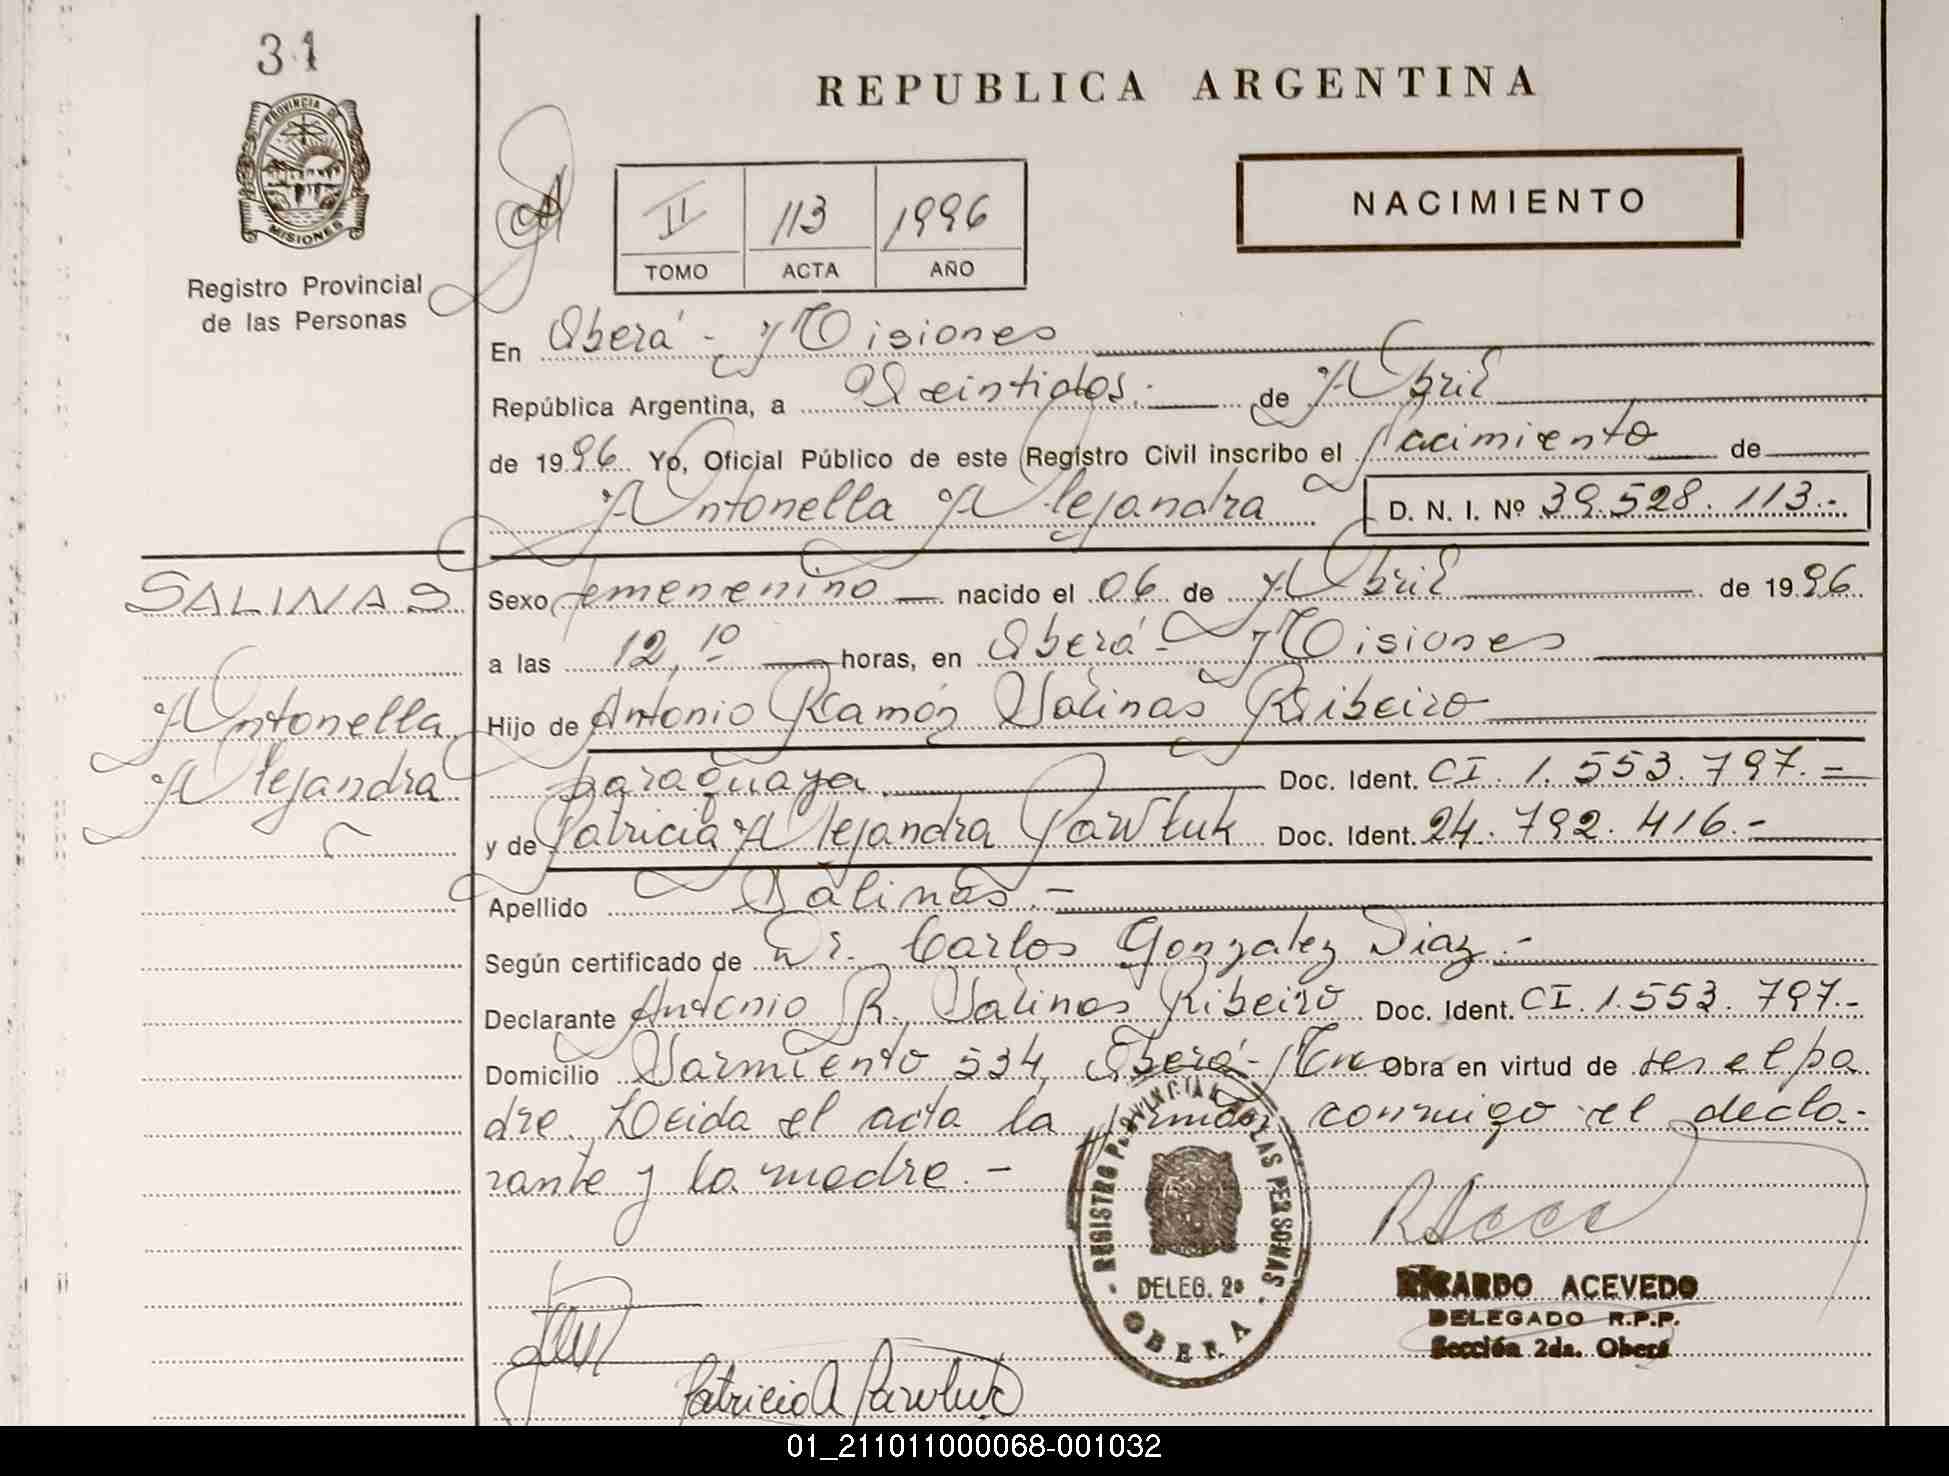 31
PROVINCIA DE
MISIONES
Registro Provincial
de las Personas
REPUBLICA ARGENTINA
II 113 1996
TOMO ACTA AÑO
NACIMIENTO
En Oberá - Misiones
República Argentina, a Veintidos. de Abril
de 1996 Yo, Oficial Público de este Registro Civil inscribo el Nacimiento de
Antonella Alejandra D. N. I. Nº 39.528.113.-
SALINAS
Antonella
Alejandra
Sexo femenenino nacido el 06 de Abril de 1996.
a las 12,10 horas, en Oberá - Misiones
Hijo de Antonio Ramón Salinas Ribeiro
paraguaya. Doc. Ident. CI. 1.553.797.-
y de Patricia Alejandra Pawluk Doc. Ident. 24.792.416.-
Apellido Salinas.-
Según certificado de Dr. Carlos Gonzalez Diaz.-
Declarante Antonio R. Salinas Ribeiro Doc. Ident. CI. 1.553.797.-
Domicilio Sarmiento 534, Oberá - Mnes Obra en virtud de ser el pa
dre. Leida el acta la firman conmigo el decla-
rante y la madre.-
REGISTRO PROVINCIAL DE LAS PERSONAS
DELEG. 2a
OBERA
RICARDO ACEVEDO
DELEGADO R.P.P.
Sección 2da. Oberá
Patricia A Pawluk
01_211011000068-001032